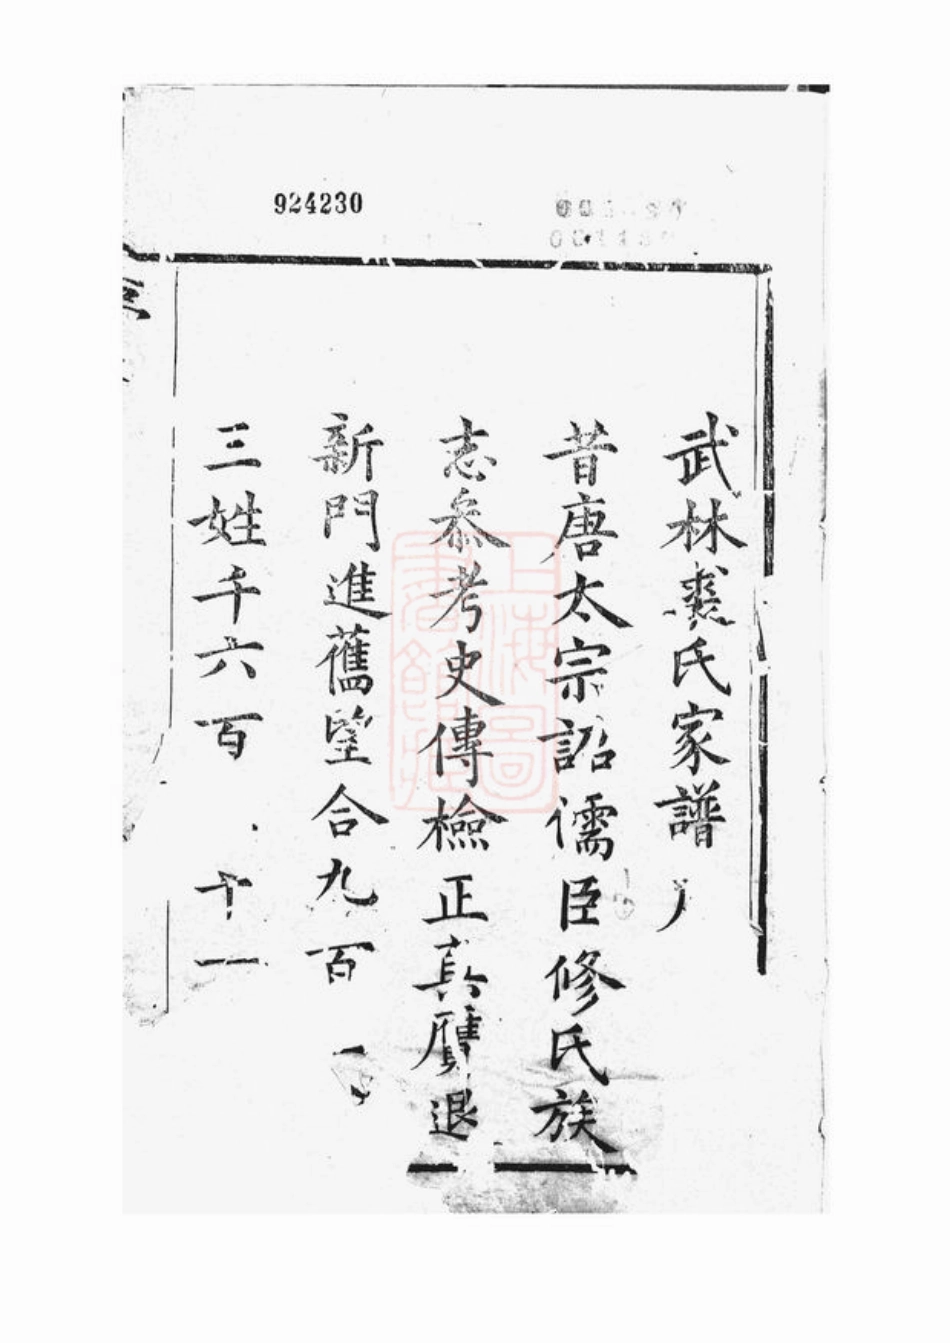 924230
武林裘氏家譜
昔唐太宗詔儒臣修氏族
志叅考史傳檢正真贋退
新門進舊望合九百
三姓千六百 十一
上海圖
書館藏